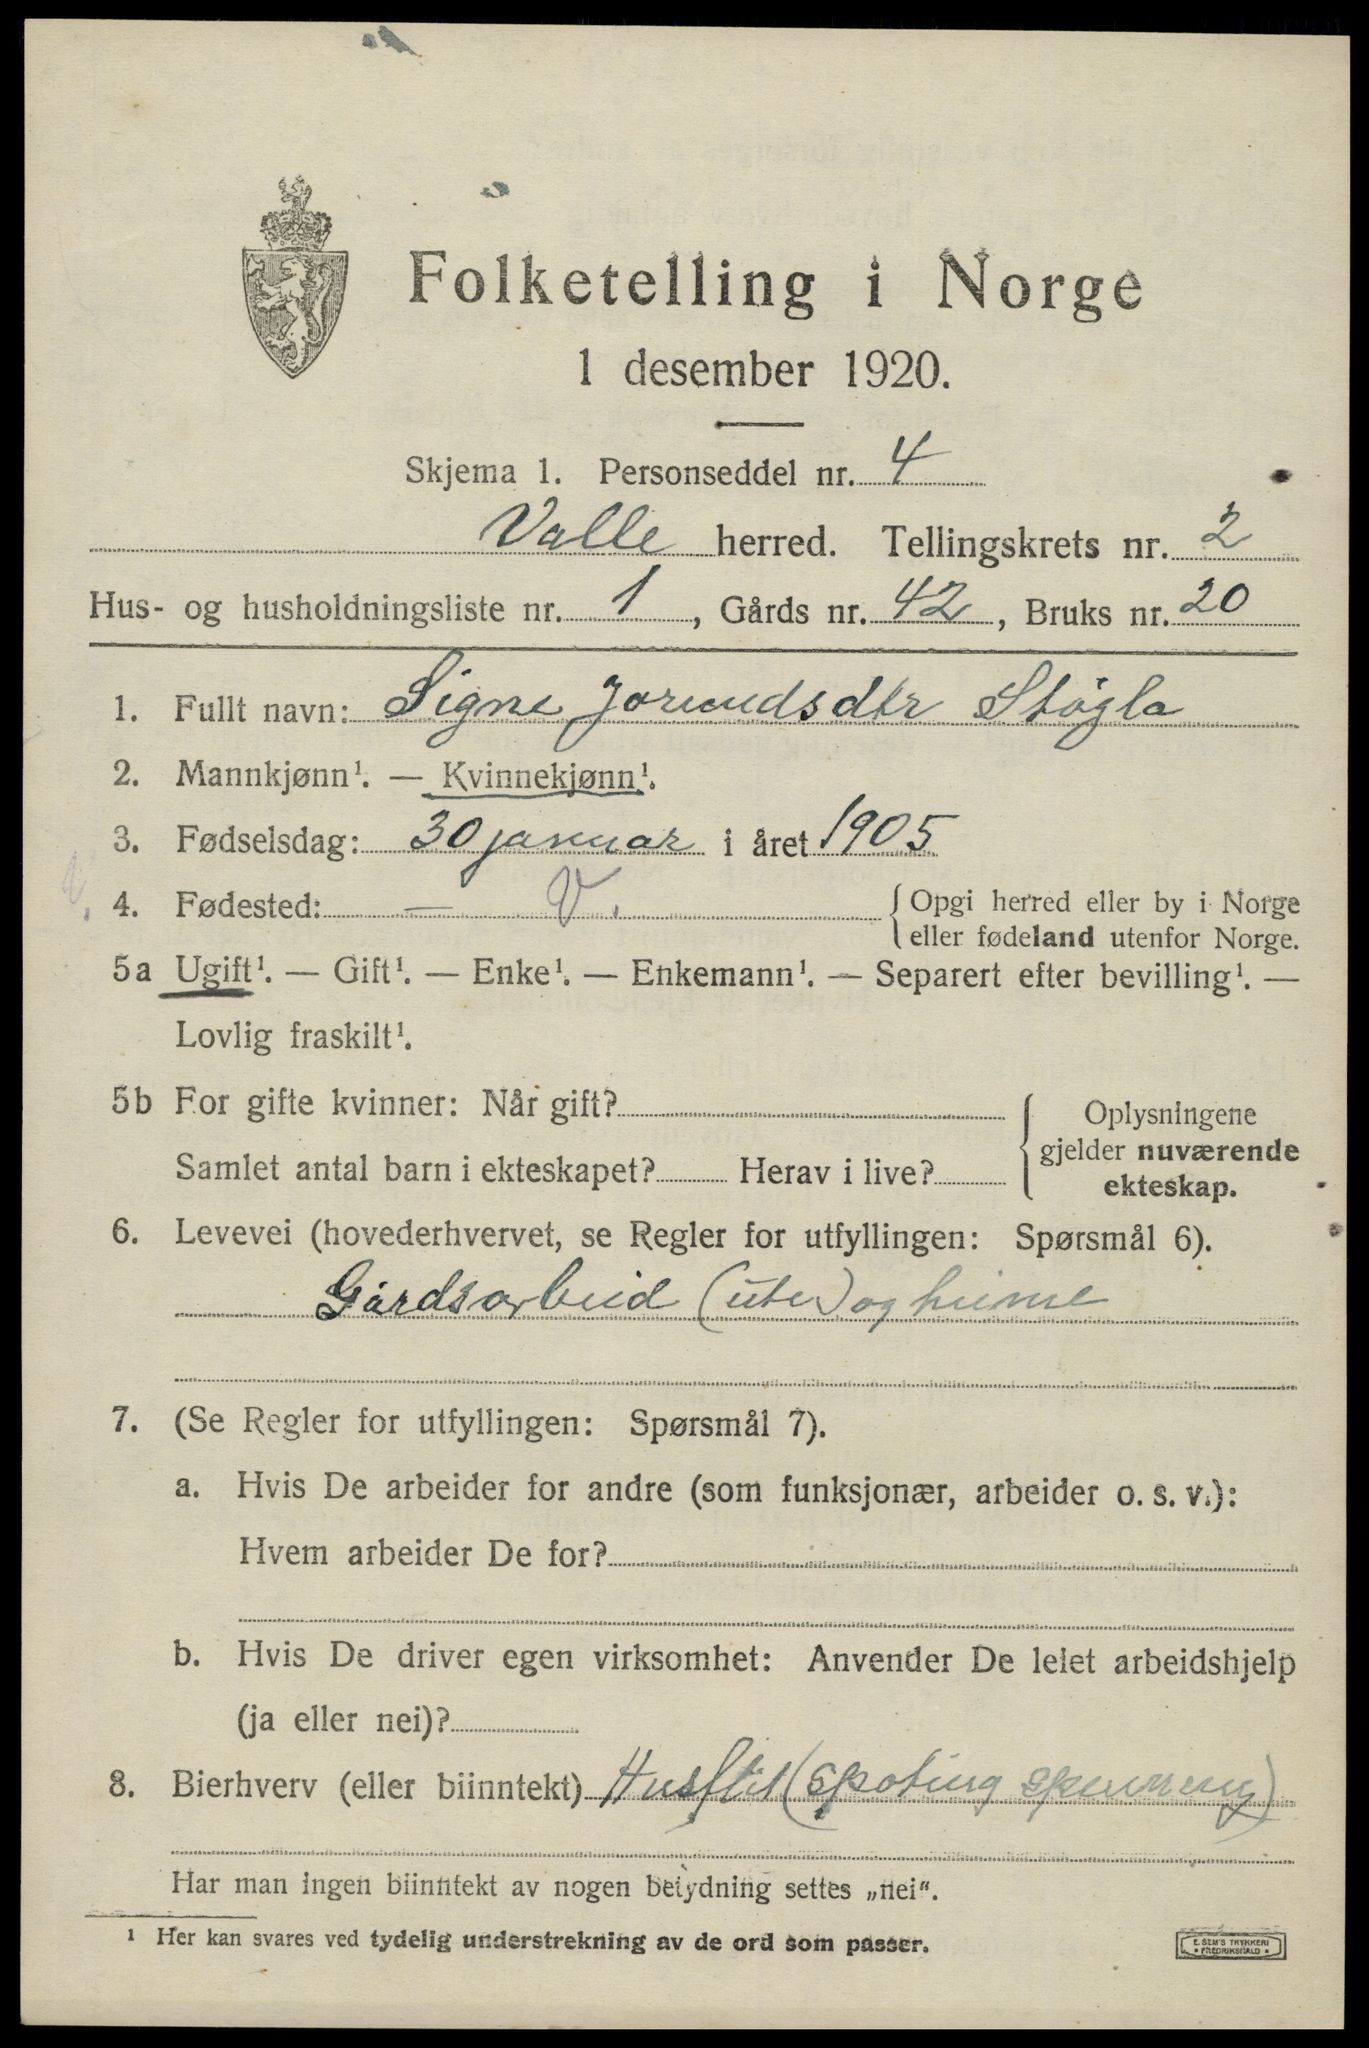 Folketelling i Norge
1 desember 1920.
Skjema 1. Personseddel nr. 4
Valle herred. Tellingskrets nr. 2
Hus- og husholdningsliste nr. 1, Gårds nr. 42, Bruks nr. 20
1. Fullt navn: Signe Jorundsdtr Støgla
2. Mannkjønn¹. — Kvinnekjønn¹.
3. Fødselsdag: 30 januar i året 1905
V. 4. Fødested: — V. Opgi herred eller by i Norge
eller fødeland utenfor Norge.
5a Ugift¹. — Gift¹. — Enke¹. — Enkemann¹. — Separert efter bevilling¹. —
Lovlig fraskilt¹.
5b For gifte kvinner: Når gift?
Samlet antal barn i ekteskapet? Herav i live?
Oplysningene
gjelder nuværende
ekteskap.
6. Levevei (hovederhvervet, se Regler for utfyllingen: Spørsmål 6).
Gårdsarbeid (ute) og heime
7. (Se Regler for utfyllingen: Spørsmål 7).
a. Hvis De arbeider for andre (som funksjonær, arbeider o. s. v.):
Hvem arbeider De for?
b. Hvis De driver egen virksomhet: Anvender De leiet arbeidshjelp
(ja eller nei)?
8. Bierhverv (eller biinntekt) Husflit (spoting
Har man ingen biinntekt av nogen betydning settes „nei“.
¹ Her kan svares ved tydelig understrekning av de ord som passer.
E. SEM'S TRYKKERI
FREDRIKSHALD